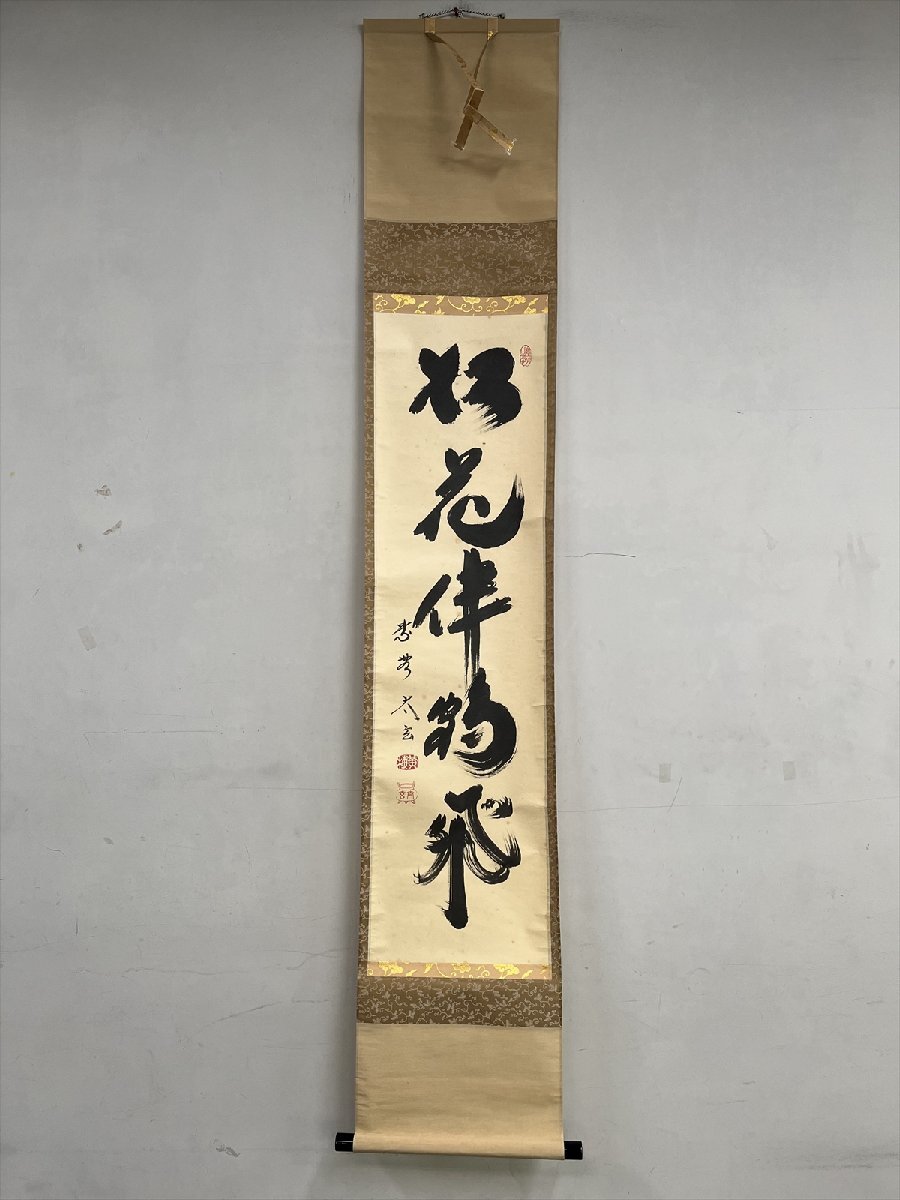 松花伴鶴飛